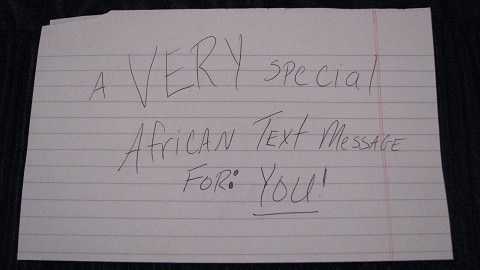 A VERY special
African Text Message
For: YOU!